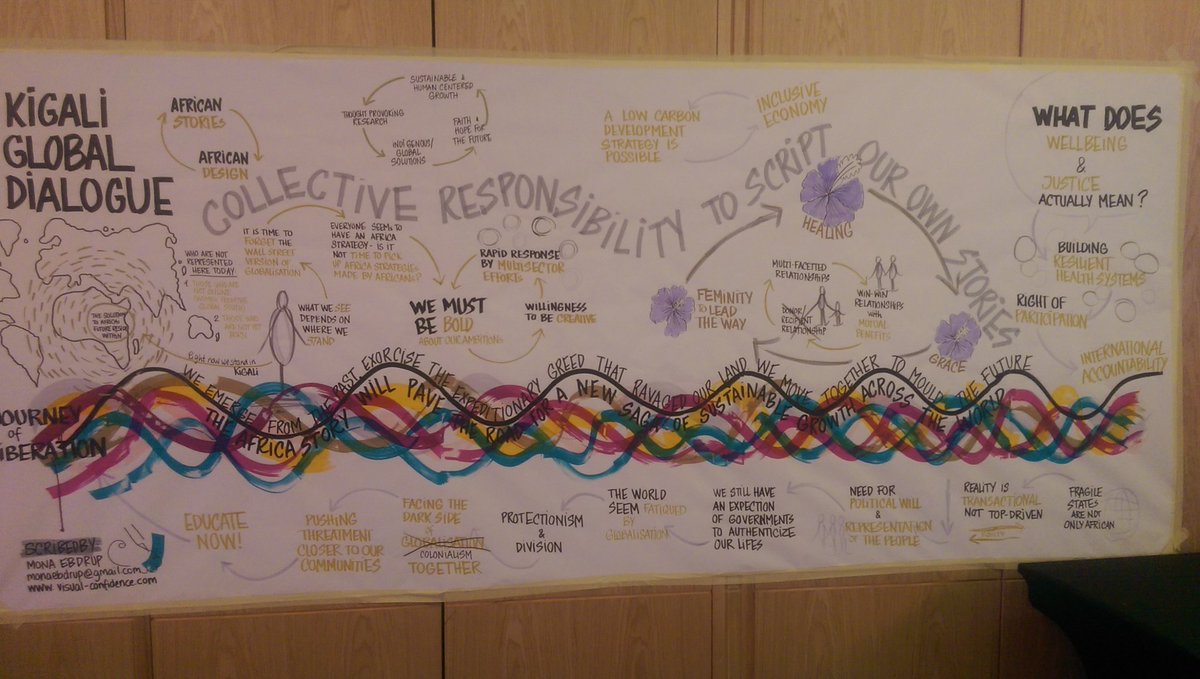 KIGALI
GLOBAL
DIALOGUE
AFRICAN
STORIES
AFRICAN
DESIGN
SUSTAINABLE &
HUMAN CENTERED
GROWTH
THOUGHT PROVOKING
RESEARCH
INDIGENOUS/
GLOBAL
SOLUTIONS
FAITH &
HOPE FOR
THE FUTURE
A LOW CARBON
DEVELOPMENT
STRATEGY IS
POSSIBLE
INCLUSIVE
ECONOMY
COLLECTIVE RESPONSIBILITY TO SCRIPT OUR OWN STORIES
WHAT DOES
WELLBEING
&
JUSTICE
ACTUALLY MEAN?
BUILDING
RESILIENT
HEALTH SYSTEMS
RIGHT OF
PARTICIPATION
INTERNATIONAL
ACCOUNTABILITY
WHO ARE NOT
REPRESENTED
HERE TODAY
IT IS TIME TO
FORGET THE
WALL STREET
VERSION OF
GLOBALISATION
EVERYONE SEEMS TO
HAVE AN AFRICA
STRATEGY - IS IT
NOT TIME TO PICK
UP AFRICA STRATEGIES
MADE BY AFRICANS?
WHAT WE SEE
DEPENDS ON
WHERE WE
STAND
Right now we stand in
KIGALI
RAPID RESPONSE
BY MULTISECTOR
EFFORTS
WE MUST
BE BOLD
ABOUT OUR AMBITIONS
WILLINGNESS
TO BE CREATIVE
HEALING
FEMINITY
TO LEAD
THE WAY
GRACE
MULTI-FACETTED
RELATIONSHIPS
DONOR/
RECIPIENT
RELATIONSHIP
WIN-WIN
RELATIONSHIPS
WITH
MUTUAL
BENEFITS
JOURNEY
of
LIBERATION
WE EMERGE FROM THE PAST EXORCISE THE EXPEDITIONARY GREED THAT RAVAGED OUR LAND WE MOVE TOGETHER TO MOULD THE FUTURE
THE AFRICA STORY WILL PAVE THE ROAD FOR A NEW SAGA OF SUSTAINABLE GROWTH ACROSS THE WORLD
SCRIBED BY
MONA EBDRUP
monaebdrup@gmail.com
www.visual-confidence.com
EDUCATE
NOW!
PUSHING
THREATMENT
CLOSER TO OUR
COMMUNITIES
FACING THE
DARK SIDE
OF
GLOBALISATION
COLONIALISM
TOGETHER
PROTECTIONISM
&
DIVISION
THE WORLD
SEEM FATIGUED
BY
GLOBALISATION
WE STILL HAVE
AN EXPECTION
OF GOVERNMENTS
TO AUTHENTICIZE
OUR LIFES
NEED FOR
POLITICAL WILL
&
REPRESENTATION
OF THE PEOPLE
REALITY IS
TRANSACTIONAL
NOT TOP-DRIVEN
EQUITY
FRAGILE
STATES
ARE NOT
ONLY AFRICAN